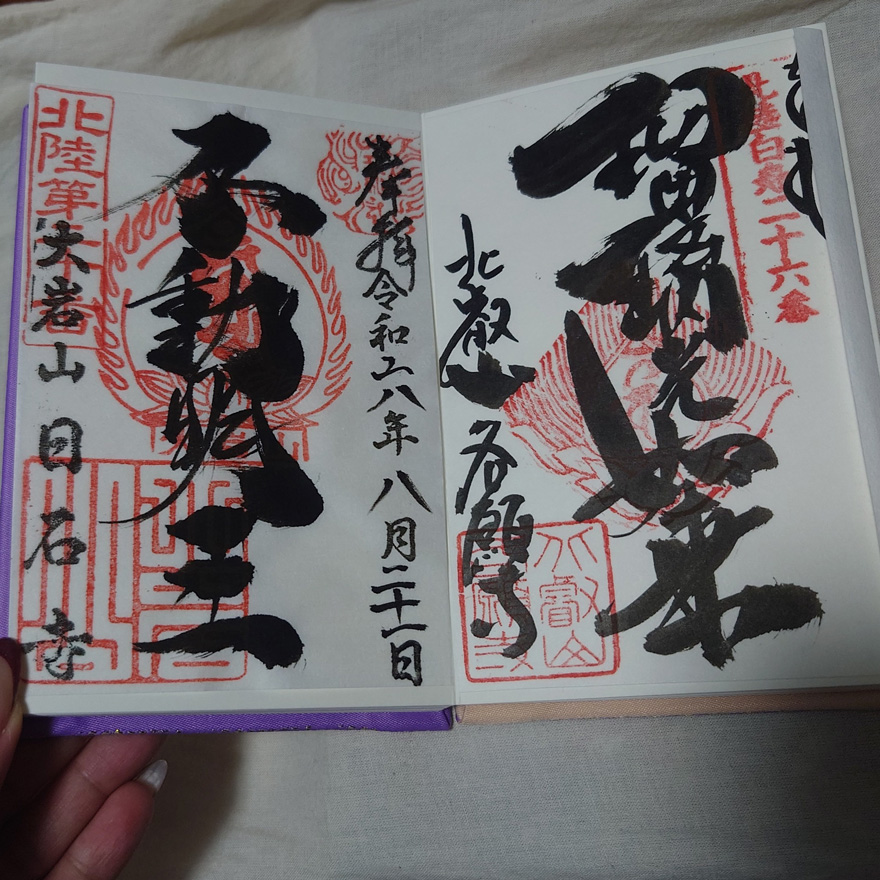 二十六番
瑠璃光如来
北叡山 各願寺
奉拝 令和六年 八月二十一日
不動明王
北陸第
大岩山 日石寺